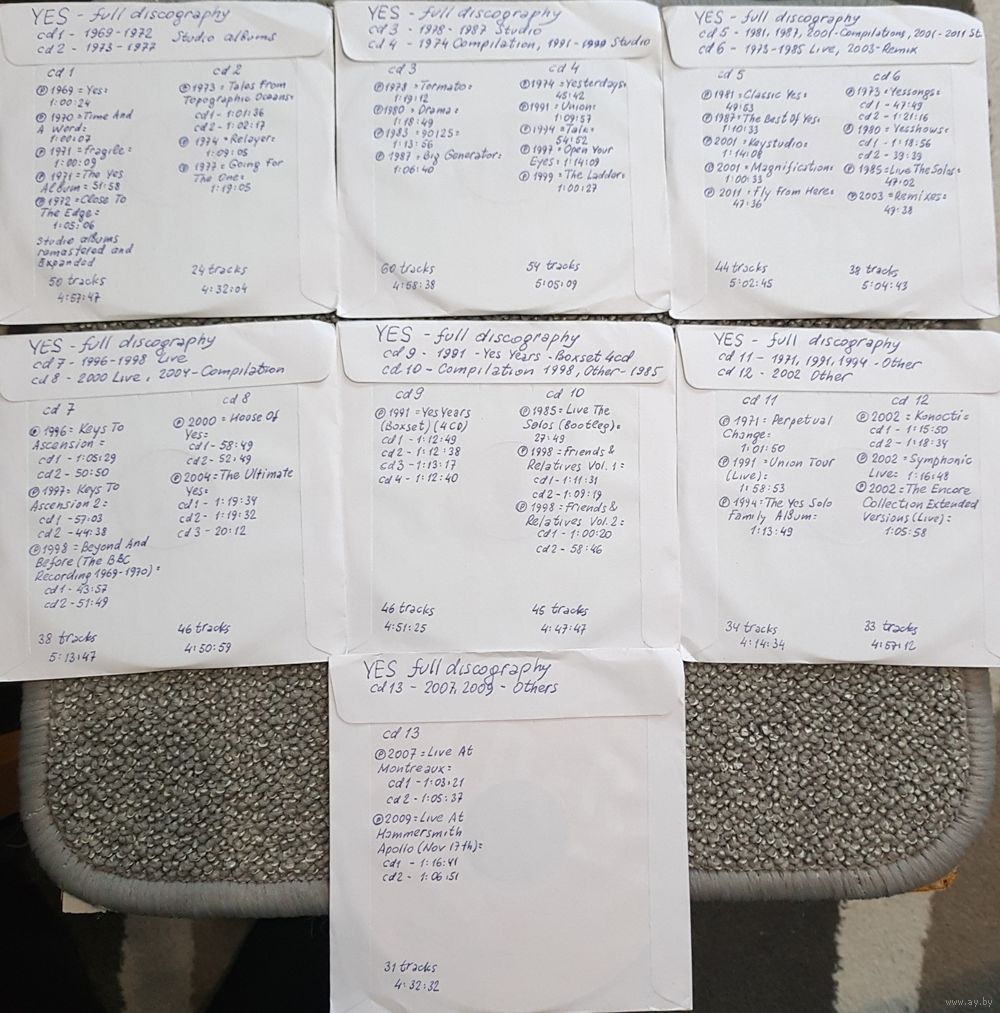 YES - full discography
cd 1 - 1969-1972 Studio albums
cd 2 - 1973-1977
cd 1
Ⓟ 1969 "Yes"
1:00:24
Ⓟ 1970 "Time And
A Word"
1:00:07
Ⓟ 1971 "Fragile"
1:00:09
Ⓟ 1971 "The Yes
Album" = 51:58
Ⓟ 1972 "Close To
The Edge"
1:05:06
Studio albums
remastered and
Expanded
50 tracks
4:57:47
cd 2
Ⓟ 1973 "Tales From
Topographic Oceans"
cd1 - 1:01:36
cd2 - 1:02:17
Ⓟ 1974 "Relayer"
1:09:05
Ⓟ 1977 "Going For
The One"
1:19:05
24 tracks
4:32:04
YES - full discography
cd 3 - 1978-1987 Studio
cd 4 - 1974 Compilation, 1991-1999 Studio
cd 3
Ⓟ 1978 "Tormato"
1:19:12
Ⓟ 1980 "Drama"
1:18:49
Ⓟ 1983 "90125"
1:13:56
Ⓟ 1987 "Big Generator"
1:06:40
60 tracks
4:58:38
cd 4
Ⓟ 1974 "Yesterdays"
45:42
Ⓟ 1991 "Union"
1:09:57
Ⓟ 1994 "Talk"
54:52
Ⓟ 1997 "Open Your
Eyes" 1:14:09
Ⓟ 1999 "The Ladder"
1:00:27
54 tracks
5:05:09
YES - full discography
cd 5 - 1981, 1987, 2001-Compilations, 2001-2011 St.
cd 6 - 1973-1985 Live, 2003-Remix
cd 5
Ⓟ 1981 "Classic Yes"
49:53
Ⓟ 1987 "The Best Of Yes"
1:10:33
Ⓟ 2001 "Keystudio"
1:14:08
Ⓟ 2001 "Magnification"
1:00:33
Ⓟ 2011 "Fly From Here"
47:36
44 tracks
5:02:45
cd 6
Ⓟ 1973 "Yessongs"
cd 1 - 47:49
cd 2 - 1:21:16
Ⓟ 1980 "Yesshows"
cd 1 - 1:18:56
cd 2 - 39:39
Ⓟ 1985 "Live The Solos"
47:02
Ⓟ 2003 "Remixes"
49:38
38 tracks
5:04:43
YES - full discography
cd 7 - 1996-1998 Live
cd 8 - 2000 Live, 2004-Compilation
cd 7
Ⓟ 1996 "Keys To
Ascension"
cd1 - 1:05:29
cd2 - 50:50
Ⓟ 1997 "Keys To
Ascension 2"
cd1 - 57:03
cd2 - 44:38
Ⓟ 1998 "Beyond And
Before (The BBC
Recording 1969-1970)"
cd1 - 43:57
cd2 - 51:49
38 tracks
5:13:47
cd 8
Ⓟ 2000 "House Of
Yes"
cd1 - 58:49
cd2 - 52:49
Ⓟ 2004 "The Ultimate
Yes"
cd1 - 1:19:34
cd2 - 1:19:32
cd3 - 20:12
46 tracks
4:50:59
YES - full discography
cd 9 - 1991 - Yes Years - Boxset 4cd
cd 10 - Compilation 1998, Other - 1985
cd 9
Ⓟ 1991 "Yes Years
(Boxset) (4 CD)
cd 1 - 1:12:49
cd 2 - 1:12:38
cd 3 - 1:13:17
cd 4 - 1:12:40
46 tracks
4:51:25
cd 10
Ⓟ 1985 "Live The
Solos (Bootleg)"
27:49
Ⓟ 1998 "Friends &
Relatives Vol. 1"
cd1 - 1:11:31
cd2 - 1:09:19
Ⓟ 1998 "Friends &
Relatives Vol. 2"
cd 1 - 1:00:20
cd 2 - 58:46
45 tracks
4:47:47
YES - full discography
cd 11 - 1971, 1991, 1994 - Other
cd 12 - 2002 Other
cd 11
Ⓟ 1971 "Perpetual
Change"
1:01:50
Ⓟ 1991 "Union Tour
(Live)"
1:58:53
Ⓟ 1994 "The Yes Solo
Family Album"
1:13:49
34 tracks
4:14:34
cd 12
Ⓟ 2002 "Konocti"
cd1 - 1:15:50
cd2 - 1:18:34
Ⓟ 2002 "Symphonic
Live" 1:16:48
Ⓟ 2002 "The Encore
Collection Extended
Versions (Live)"
1:05:58
33 tracks
4:57:12
YES full discography
cd 13 - 2007, 2009 - Others
cd 13
Ⓟ 2007 "Live At
Montreaux"
cd1 - 1:03:21
cd2 - 1:05:37
Ⓟ 2009 "Live At
Hammersmith
Apollo (Nov 17th)"
cd1 - 1:16:41
cd2 - 1:06:51
31 tracks
4:32:32
www.ay.by